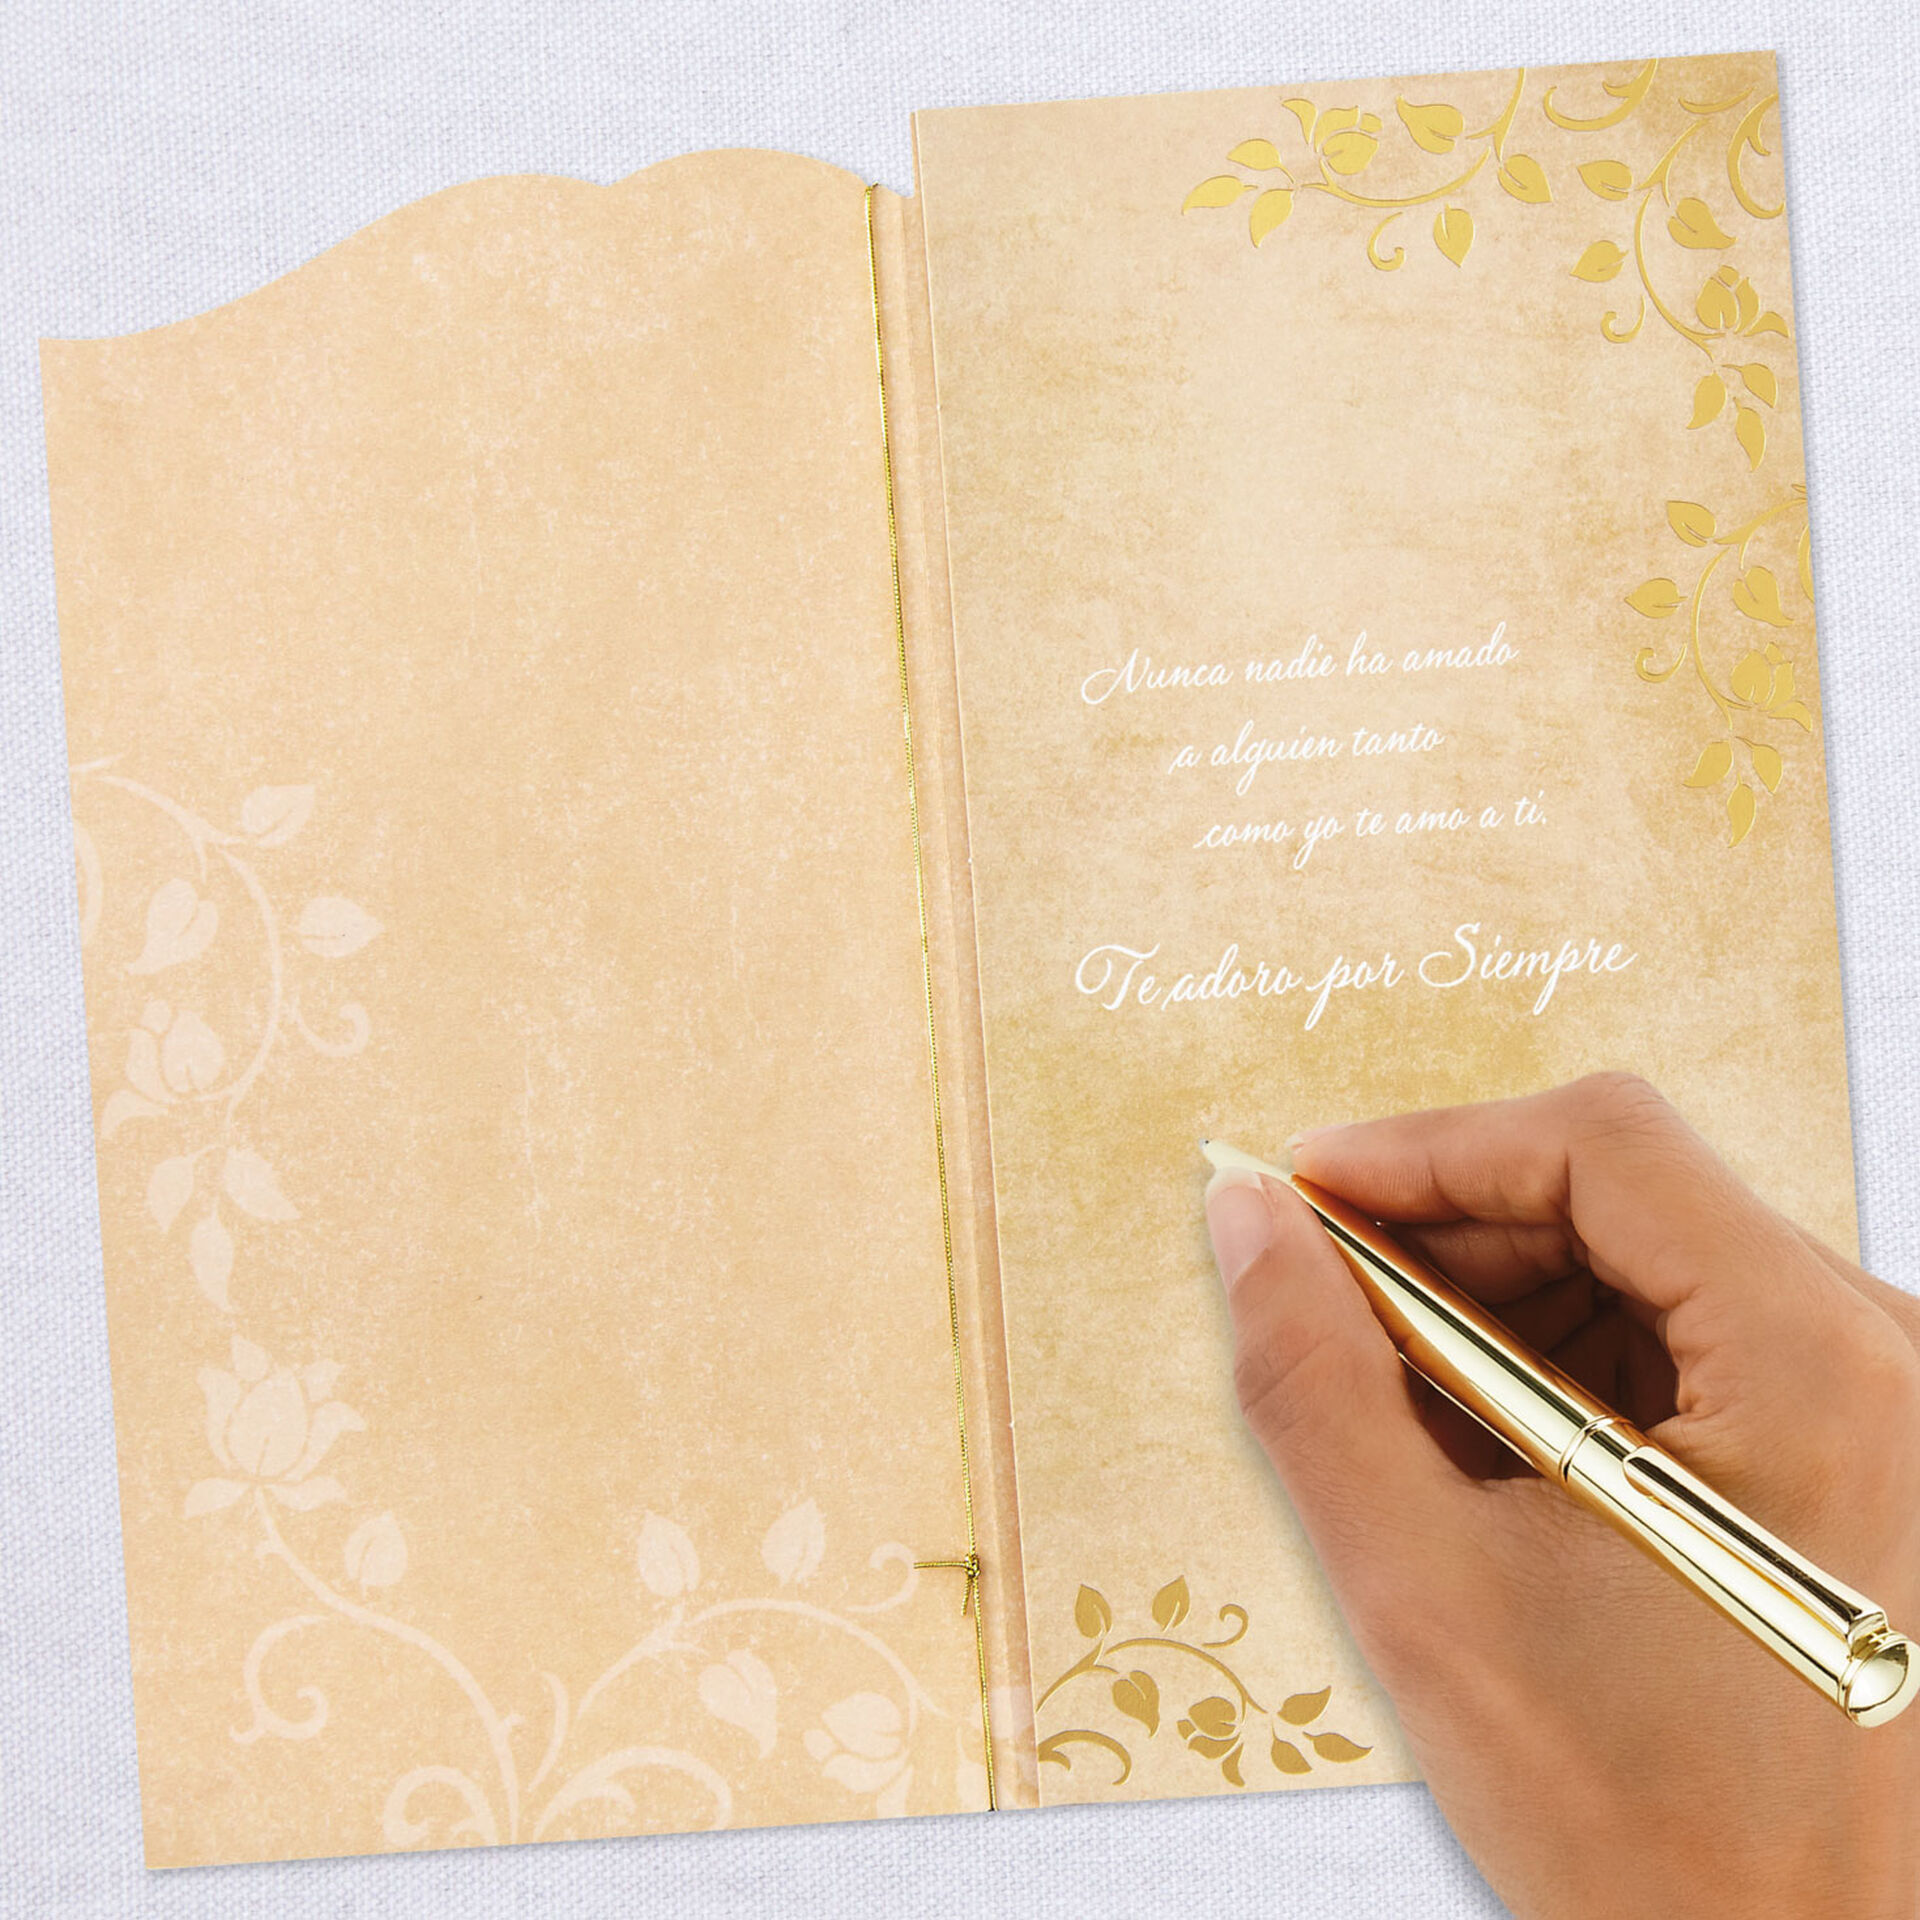 Nunca nadie ha amado
a alguien tanto
como yo te amo a ti.
Te adoro por Siempre